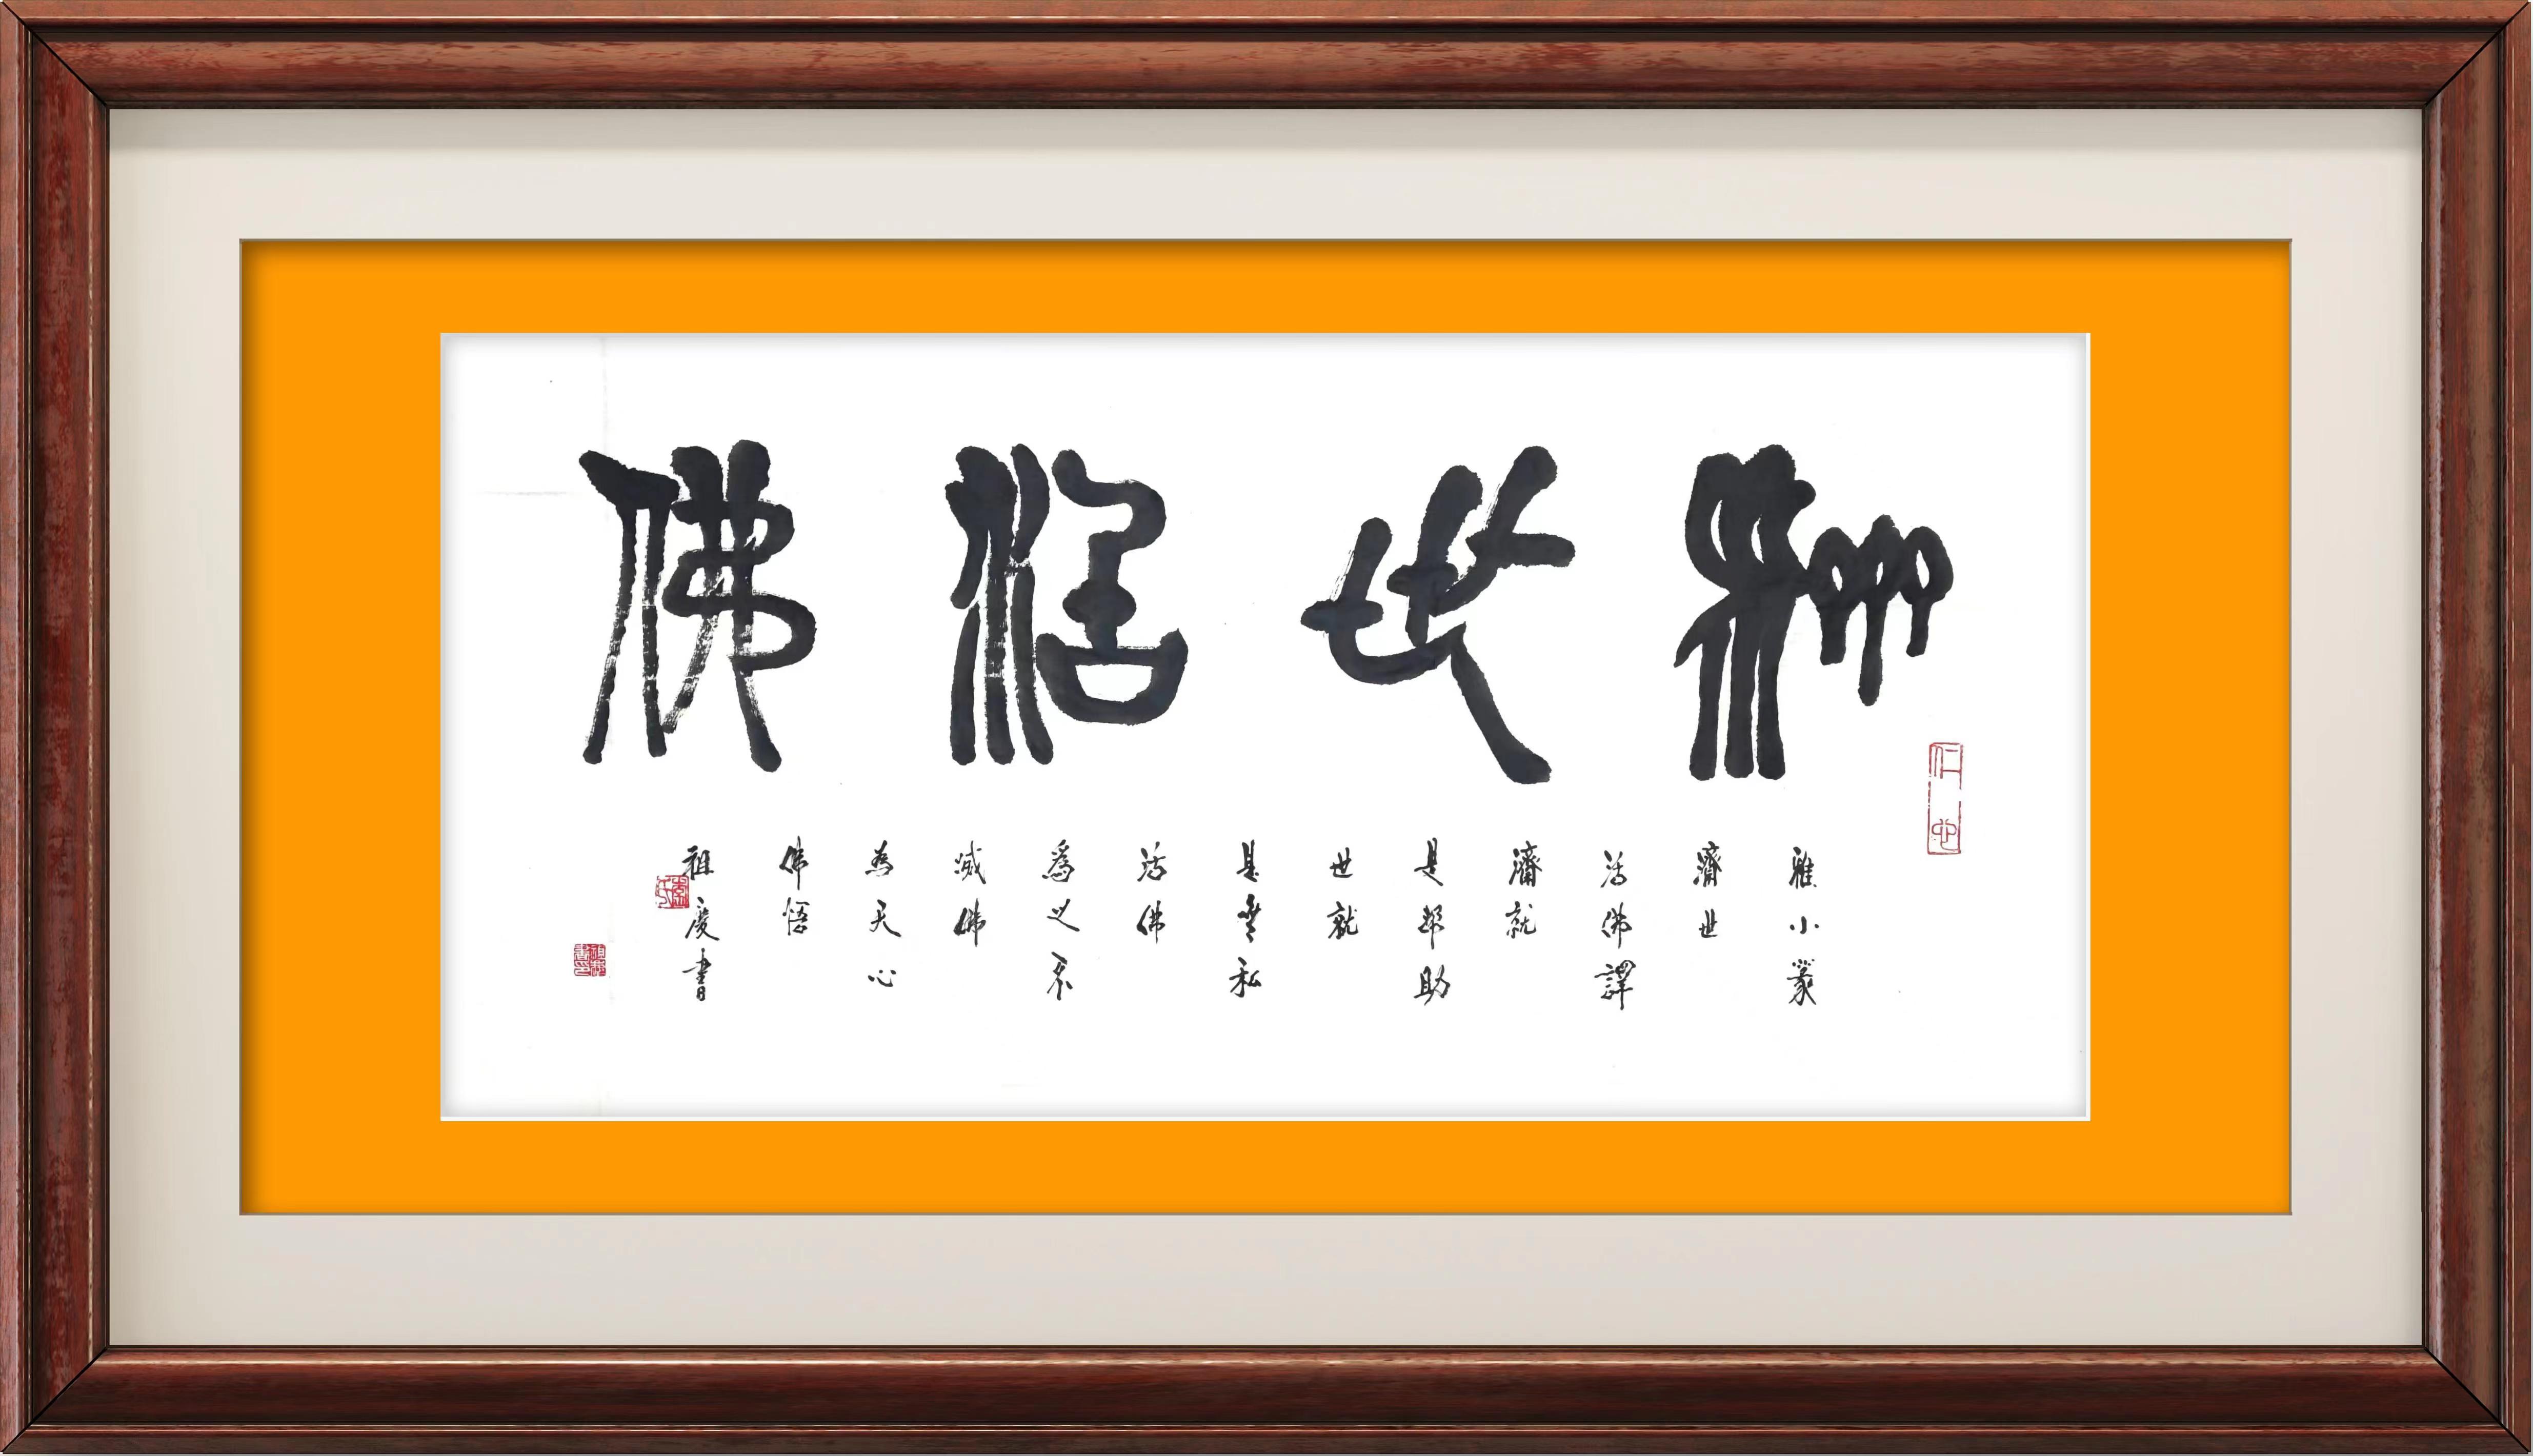 濟世活佛
雅小篆
濟世
活佛譯
濟就
是帮助
世就
是無私
活佛
為义不
滅佛
為天心
佛悟
祖慶書